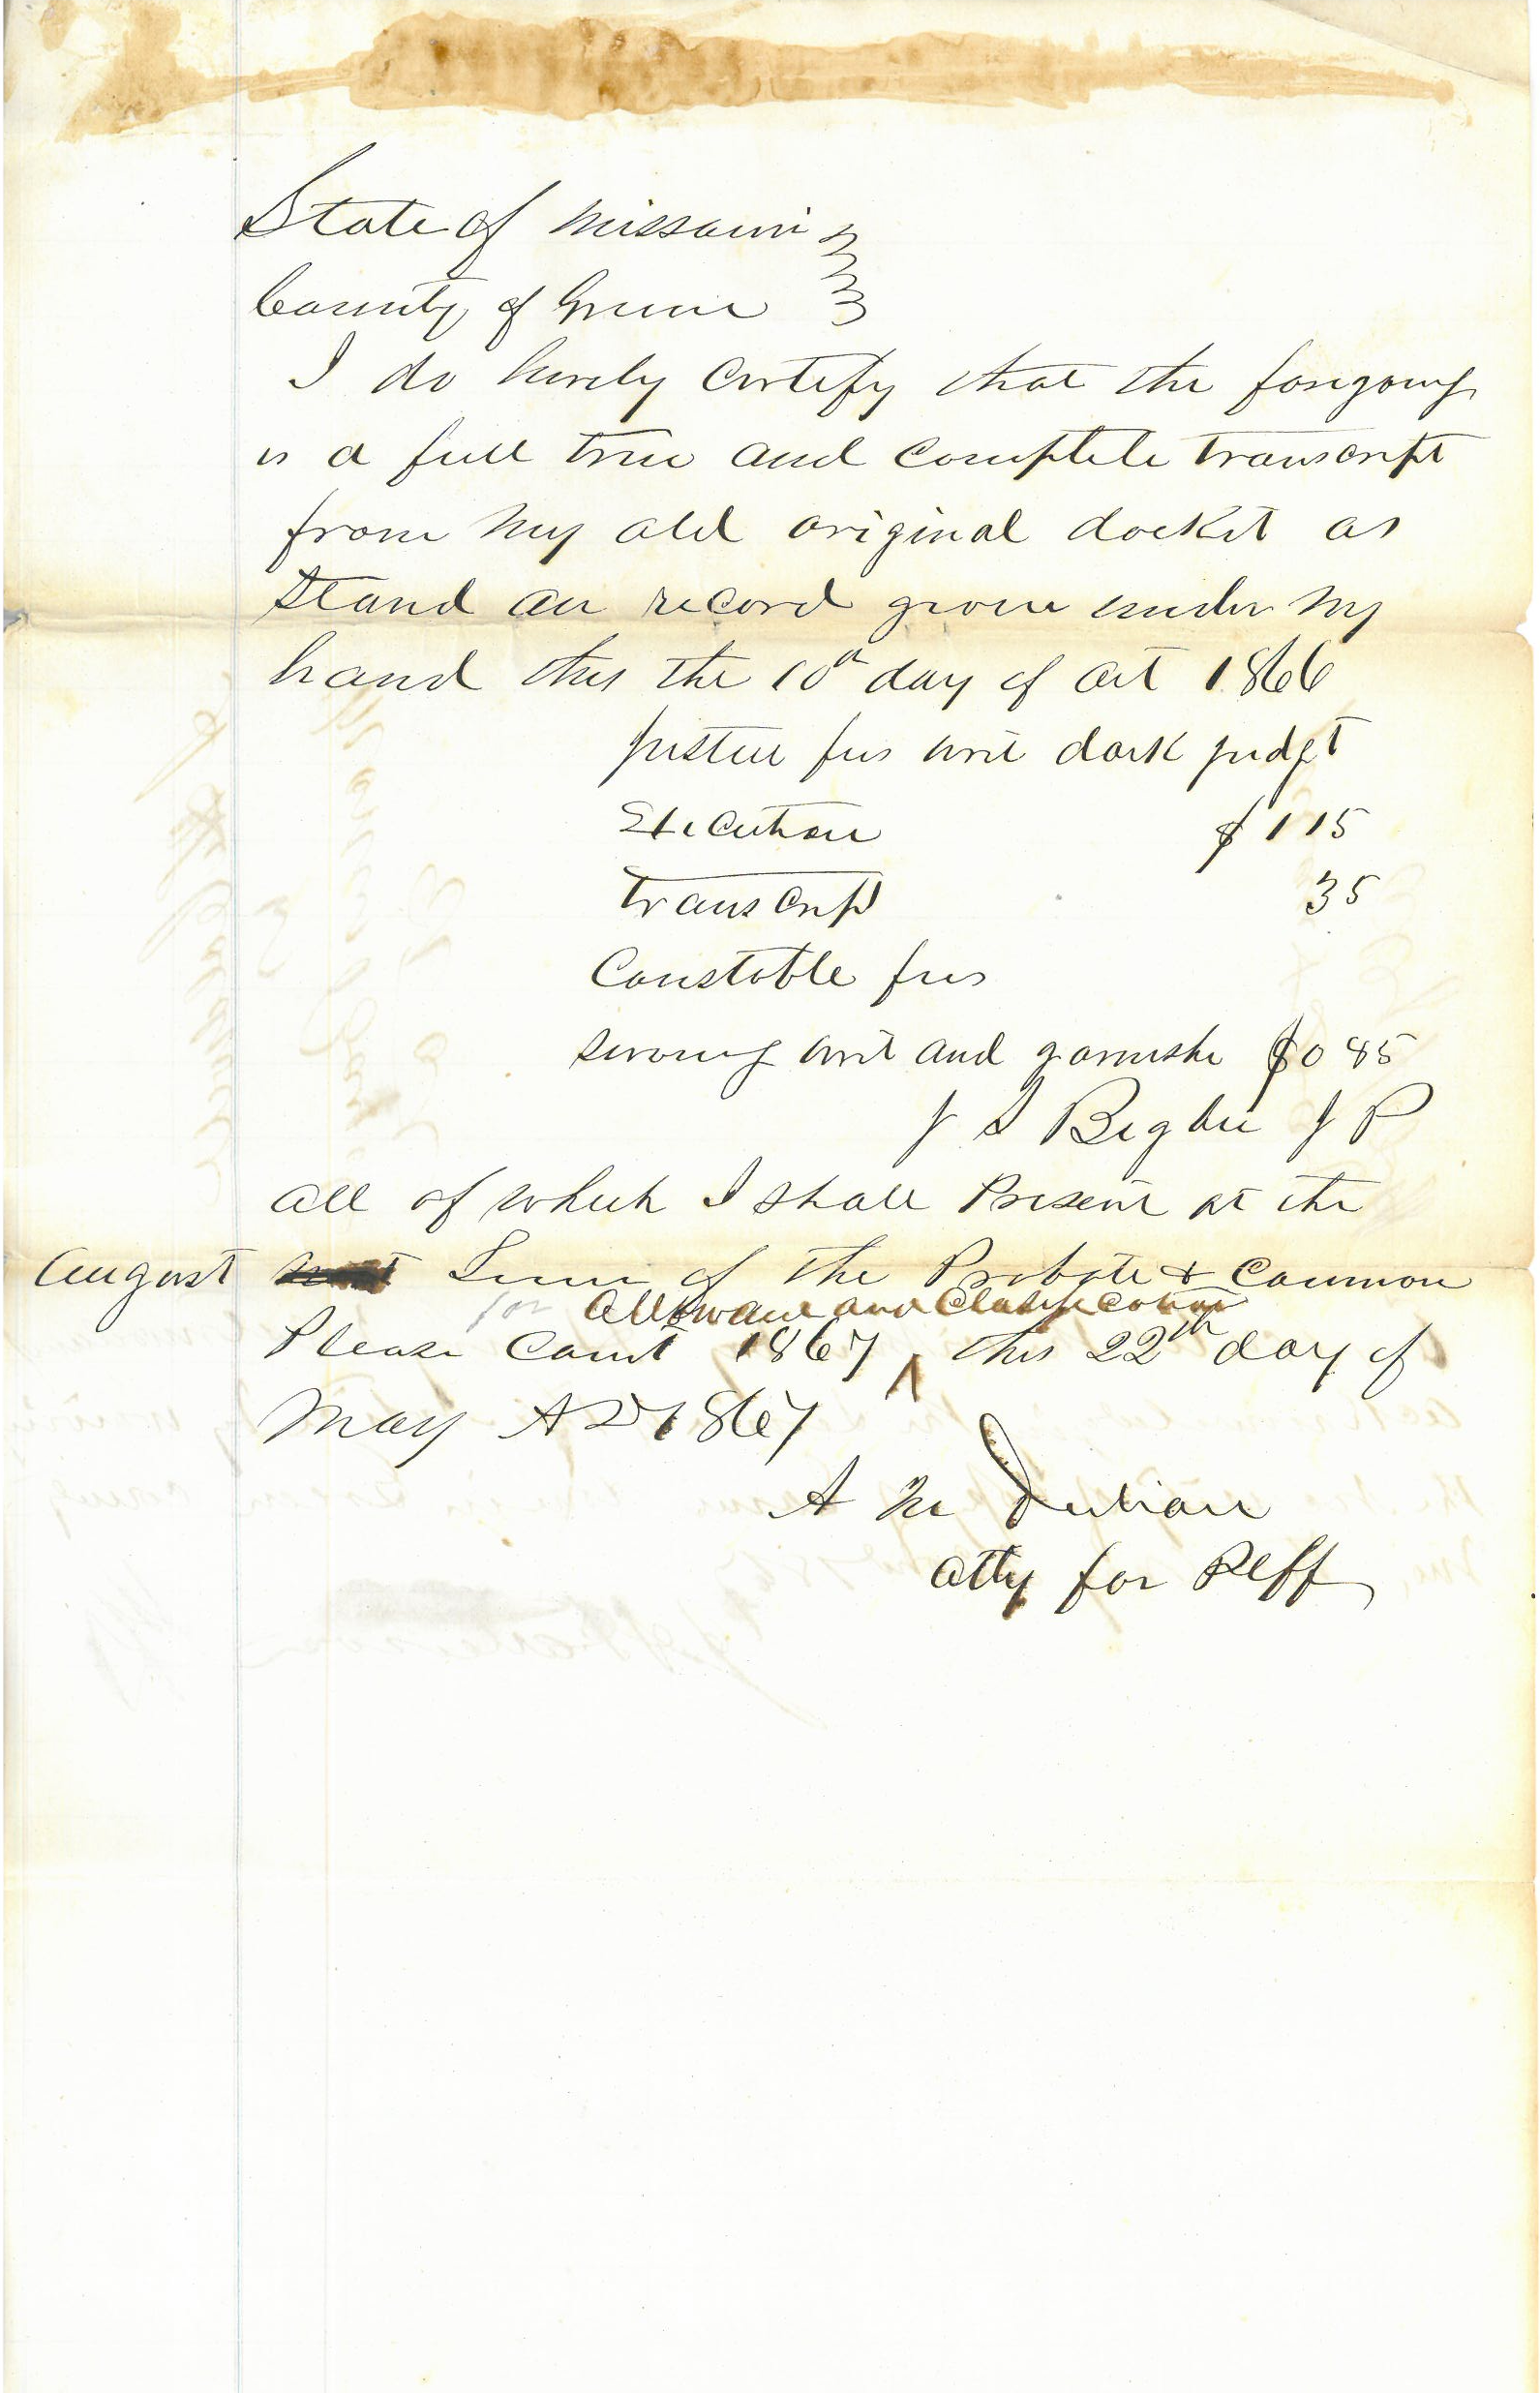 State of Missouri
County of Greene
I do hereby certify that the foregoing
is a full true and complete transcript
from my old original docket as
stand on record given under my
hand this the 10th day of Oct 1866
Justice fees writ dock judgt
Execution $1 15
Transcript 35
Constable fees
serving writ and garnishe $0 85
J S Bigbee J P
all of which I shall Present at the
August Term of the Probate & Common
for Allowance and Classification
Please Court 1867 ^ this 22th day of
May AD 1867
A M Julian
atty for Plff